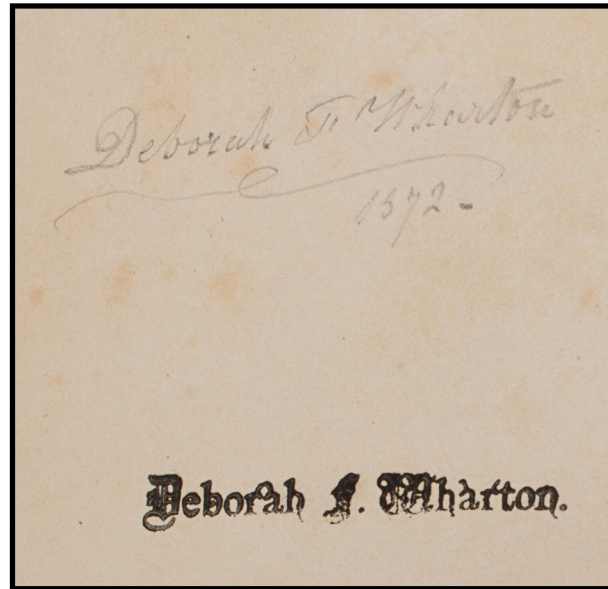 Deborah F Wharton
1872-
Deborah F. Wharton.